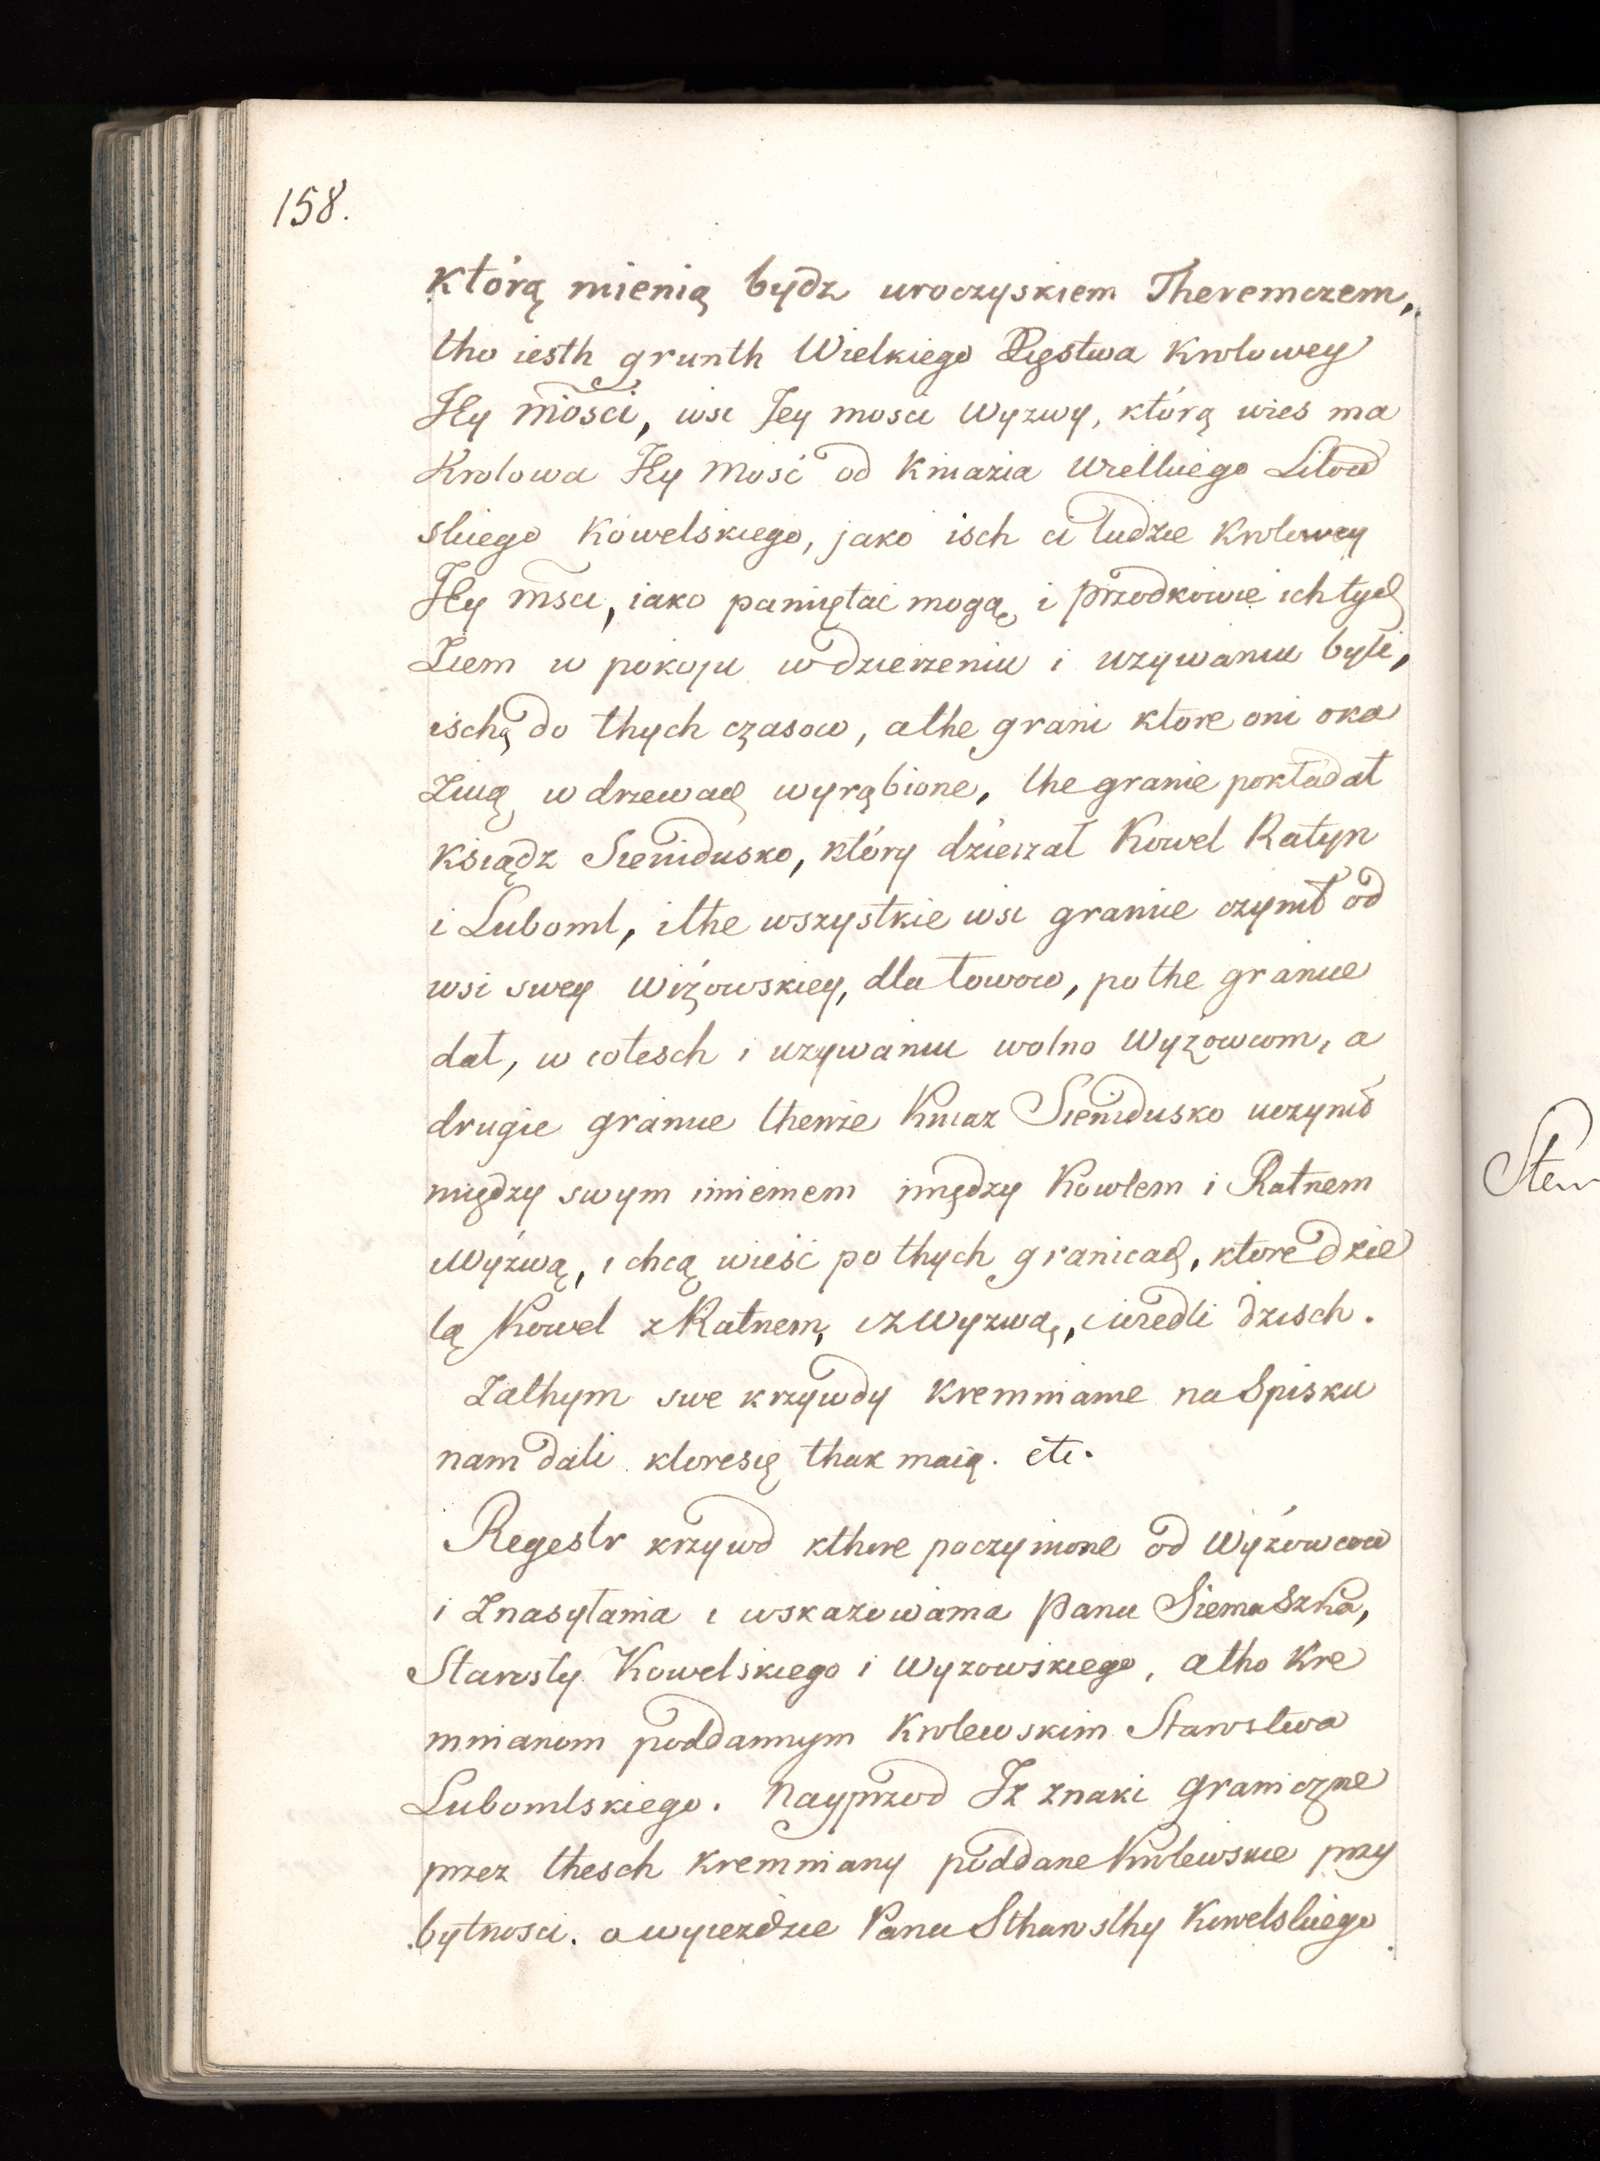 158.
którą mienią bydz uroczyskiem Theremczem,
tho iesth grunth Wielkiego Xięstwa Krolowey
Jey mości, wsi Jey mosci Wyzwy, którą wies ma
Krolowa Jey Mość od Kniazia Wielkiego Litow
skiego Kowelskiego, jako isch ci ludzie Krolowey
Jey msci, iako pamiętać mogą, i przodkowie ich tych
Ziem w pokoju w dzierzeniu i uzywaniu byli,
ischą do thych czasow, a the grani ktore oni oka
zuią w drzewach wyrąbione, the granie pokładał
Ksiądz Siendusko, który dzierzał Kowel Ratyn
i Luboml, i the wszystkie wsi granie czynił od
wsi swey Wiżowskiey, dla łowow, po the granie
dał, w cotesch i uzywaniu wolno Wyzowcom, a
drugie granie thenże Kniaz Siendusko uczynił
między swym imieniem między Kowlem i Ratnem
Wyżwą, i chcą wieść po thych granicach, ktore dzie
lą Kowel z Ratnem, i z Wyzwą, i wiedli dzisch.
Zathym swe krzywdy Kremniane na Spisku
nam dali ktore się thak maią. etc.
Regestr krzywd kthore poczynione od Wyżowcow
i Znasyłania i wskazowania Pana Siemaszka,
Starosty Kowelskiego i Wyzowskiego, a tho Kre
mnianom poddannym Krolewskim Starostwa
Lubomlskiego. Nayprzod Iz znaki graniczne
przez thesch Kremniany poddane Krolewskie przy
bytnosci. o wyiezdzie Pana Stharosthy Kowelskiego
Stem